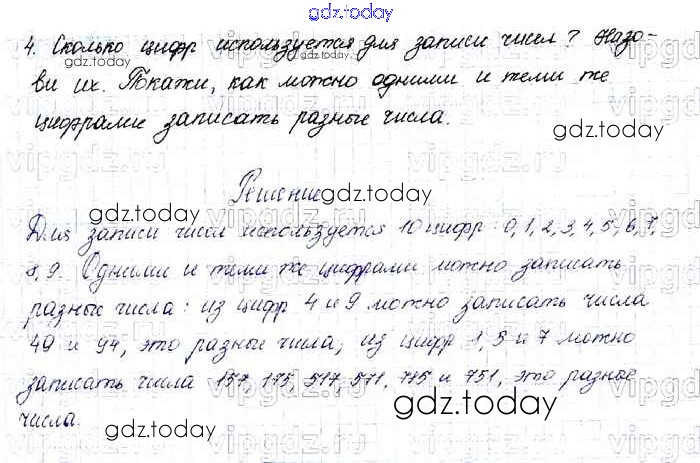 gdz.today
4. Сколько цифр используется для записи чисел? Назо-
gdz.today
ви их. Покажи, как можно одними и теми же
цифрами записать разные числа.
gdz.today
Решение
gdz.today
gdz.today
Для записи чисел используется 10 цифр: 0, 1, 2, 3, 4, 5, 6, 7,
8, 9. Одними и теми же цифрами можно записать
разные числа: из цифр 4 и 9 можно записать числа
49 и 94, это разные числа; из цифр 1, 5 и 7 можно
записать числа 157, 175, 517, 571, 715 и 751, это разные
числа.
gdz.today
gdz.today